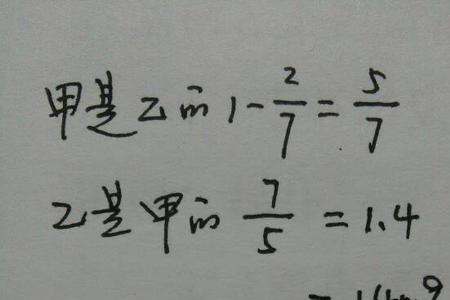 甲是乙的1-2/7=5/7
乙是甲的7/5=1.4
=14